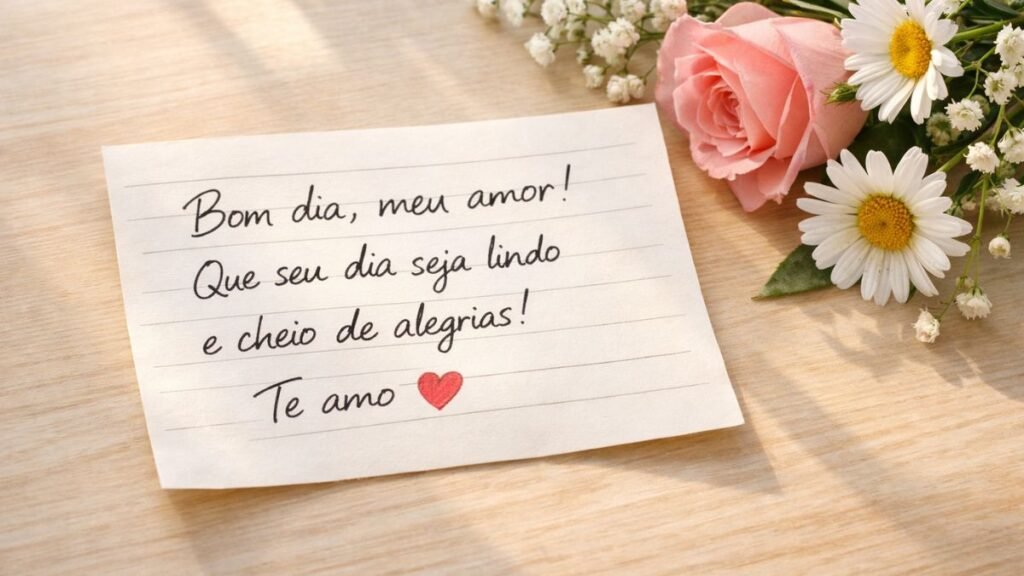 Bom dia, meu amor!
Que seu dia seja lindo
e cheio de alegrias!
Te amo ❤